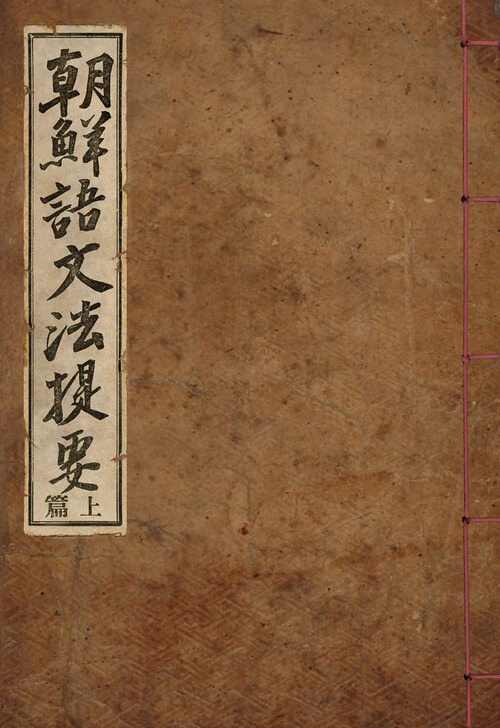 朝鮮語文法提要
上篇